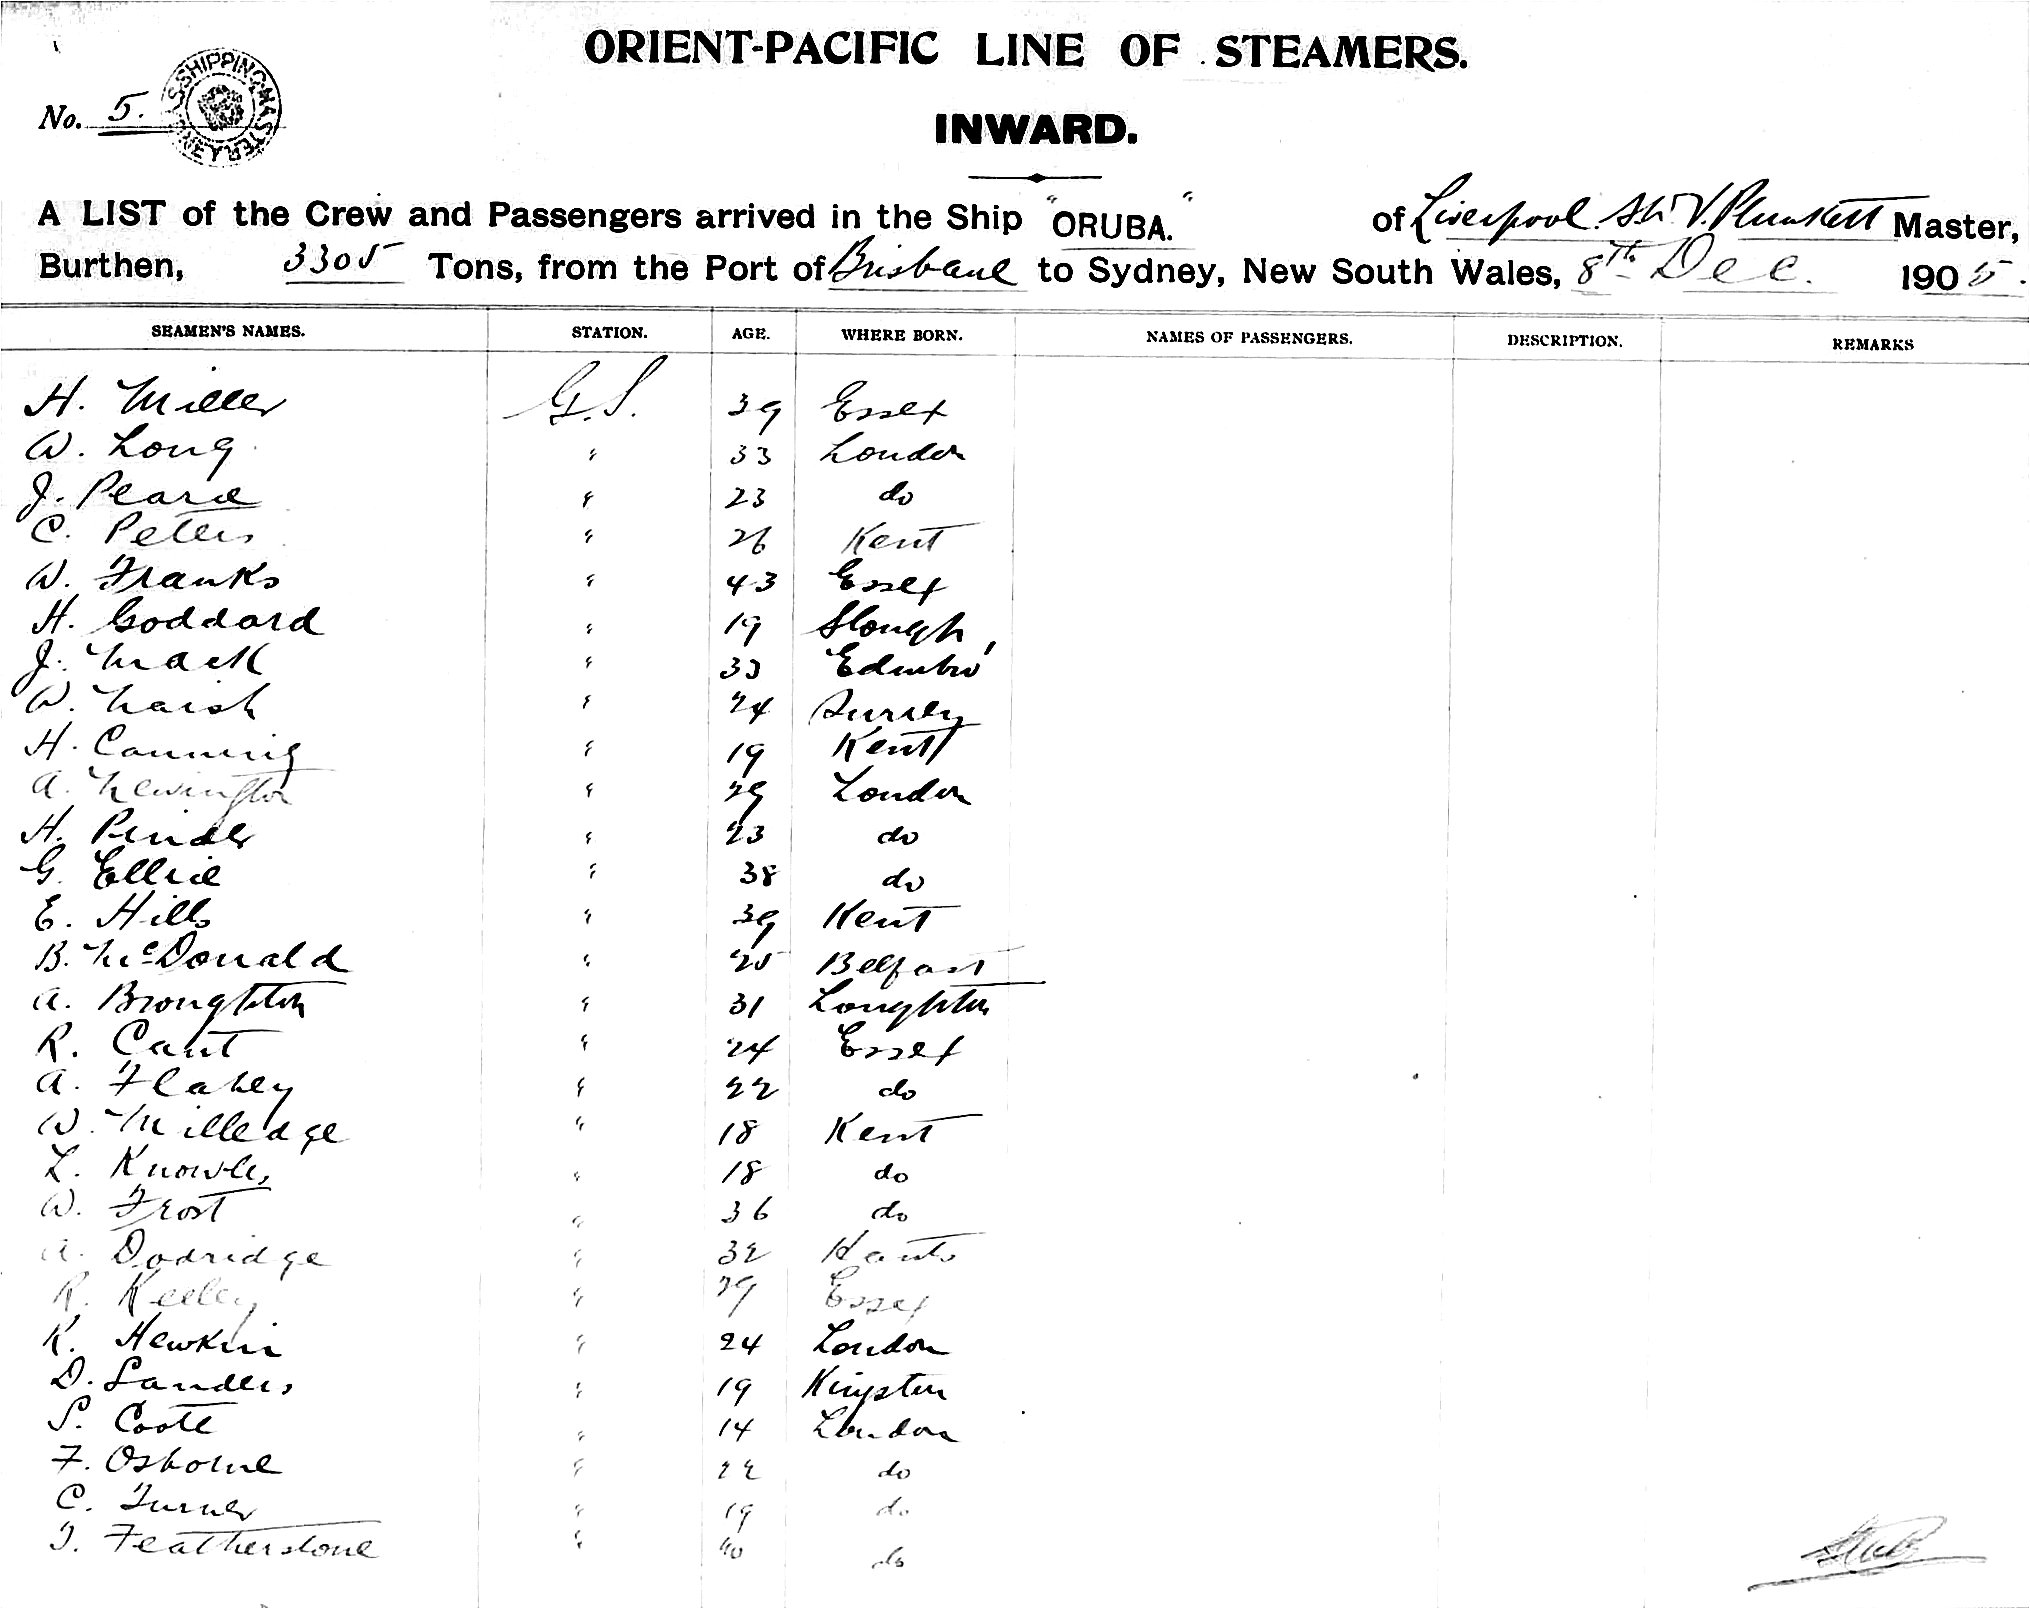 ORIENT-PACIFIC LINE OF STEAMERS.
No. 5.
SHIPPING MASTER
INWARD.
A LIST of the Crew and Passengers arrived in the Ship "ORUBA." of Liverpool. V. Plunkett Master,
Burthen, 3305 Tons, from the Port of Brisbane to Sydney, New South Wales, 8th Dec. 1905.
SEAMEN'S NAMES. STATION. AGE. WHERE BORN. NAMES OF PASSENGERS. DESCRIPTION. REMARKS
H. Miller G.S. 39 Essex
W. Long " 33 London
J. Pearce " 23 do
C. Peters " 26 Kent
W. Franks " 43 Essex
H. Goddard " 19 Slough
J. Mack " 33 Edinbro'
W. " 24 Surrey
H. Canning " 19 Kent
A. Newington " 29 London
H. Pinder " 23 do
G. " 38 do
E. Hills " 39 Kent
B. McDonald " 25 Belfast
A. Broughton " 31 Loughton
R. Cant " 24 Essex
A. Flahey " 22 do
W. Milledge " 18 Kent
L. Knowles " 18 do
W. Frost " 36 do
A. Dodridge " 32 Hants
R. Keeley " 29 Essex
R. Hewkin " 24 London
D. Sanders " 19 Kingston
S. Coote " 14 London
F. Osborne " 22 do
C. Turner " 19 do
T. Featherstone " 40 do